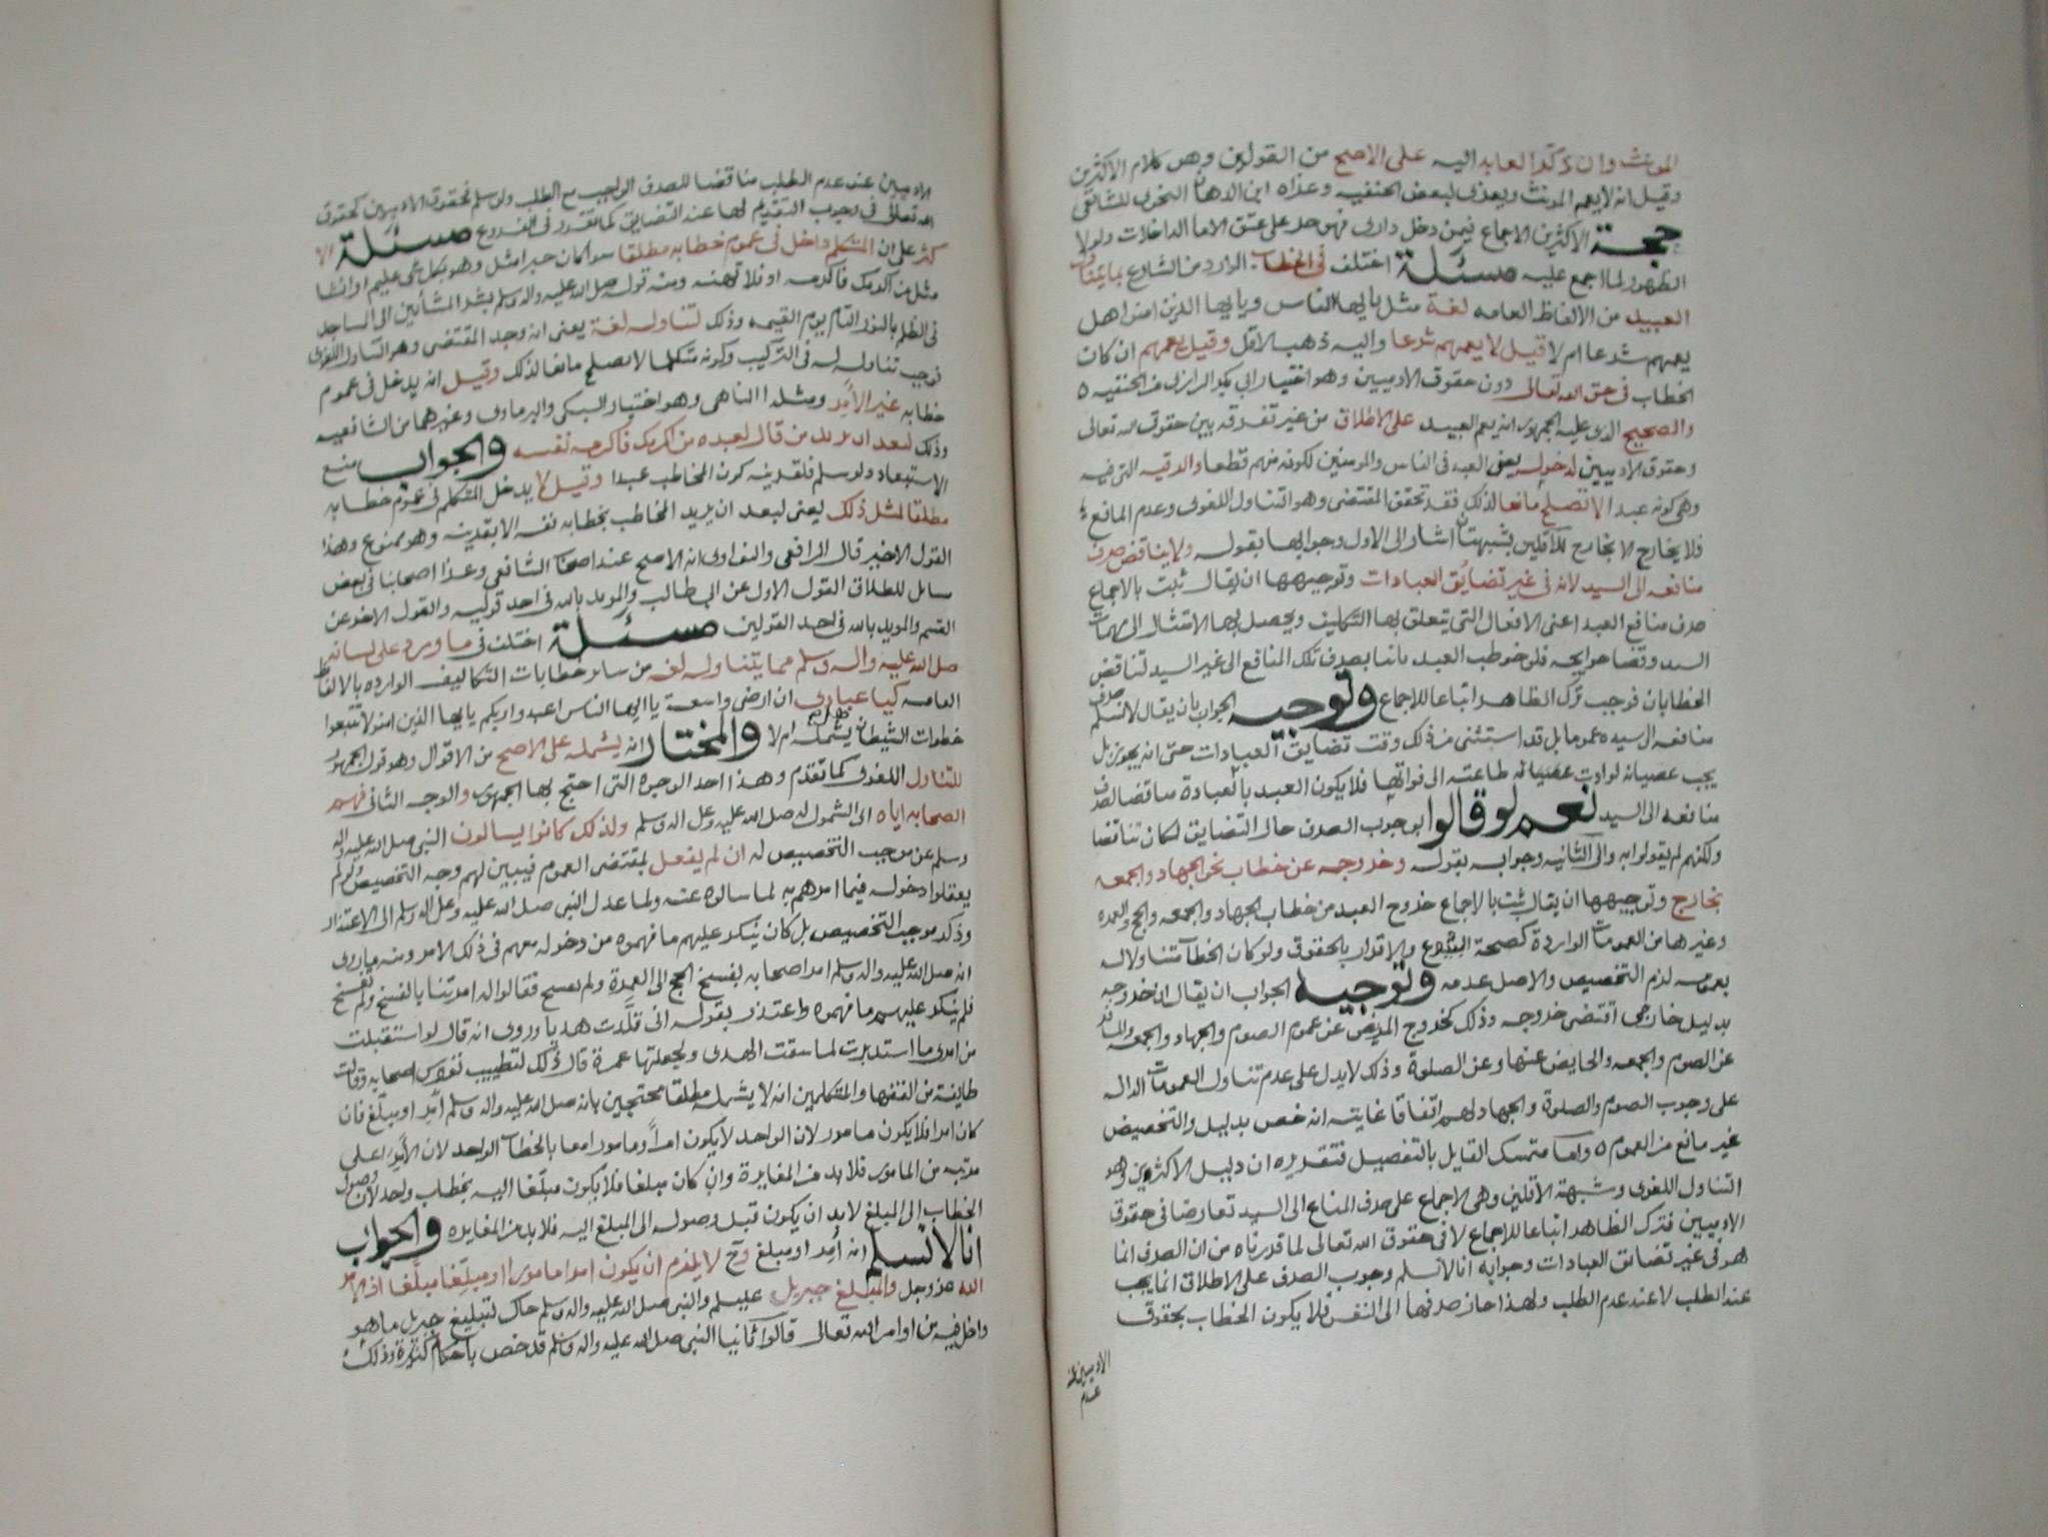 المونث وان ذكر العايد اليه على الاصح من القولين وهو كلام الاكثرين
وقيل انه لا يعم المونث ويعزى لبعض الحنفيه وعزاه ابن الدهان النحوى للشافعى
حجة الاكثرين الاجماع فيمن دخل دارى فهو حر على عتق الاما الداخلات ولولا
الظهور لما اجمع عليه مسئلة اختلف فى الخطاب الوارد من الشارع بما يتناول
العبيد من الالفاظ العامه لغة مثل يا ايها الناس ويا ايها الذين امنوا هل
يعمهم شرعا ام لا قيل لا يعمهم شرعا واليه ذهب الاقل وقيل يعمهم ان كان
الخطاب فى حق الله تعالى دون حقوق الادميين وهو اختيار ابى بكر الرازى من الحنفيه
والصحيح الذى عليه الجمهور انه يعم العبيد على الاطلاق من غير تفرقه بين حقوق الله تعالى
وحقوق الادميين لدخوله يعنى العبد فى الناس والمومنين لكونه منهم قطعا والرقيه التى فيه
وهى كونه عبدا لا تصلح مانعا لذلك فقد تحقق المقتضى وهو التناول اللغوى وعدم المانع
فلا يخارج الا بخارج للاقلين شبهتان اشار الى الاول وجوابها بقوله ولا يناقض صرف
منافعه الى السيد لانه فى غير تضايق العبادات وتوجيهها ان يقال ثبت بالاجماع
صرف منافع العبد اعنى الافعال التى يتعلق بها التكليف ويحصل بها الامتثال الى مهمات
السيد وقضا حوايجه فلو خوطب العبد باتيانها بصرف تلك المنافع الى غير السيد لتناقض
الخطابان فوجب ترك الظاهر اتباعا للاجماع وتوجيه الجواب بان يقال لا نسلم صرف
منافعه الى سيده عموما بل قد استثنى من ذلك وقت تضايق العبادات حتى انه يجوز بل
يجب عصيانه لو ادت طاعته الى فواتها فلا يكون العبد بالعبادة مناقضا لصرف
منافعه الى السيد نعم لو قالوا بوجوب الصرف حال التضايق لكان تناقضا
ولكنهم لم يقولوا به والى الثانيه وجوابه بقوله وخروجه عن خطاب نحو الجهاد والجمعه
بخارج وتوجيهها ان يقال ثبت بالاجماع خروج العبد من خطاب الجهاد والجمعه والحج والعمره
وغيرها من العمومات الواردة كصحة التبرع والاقرار بالحقوق ولو كان الخطاب متناولا له
بعمومه لزم التخصيص والاصل عدمه وتوجيه الجواب ان يقال ان خروجه
بدليل خارجى اقتضى خروجه وذلك كخروج المريض عن عموم الصوم والجهاد والجمعه والمسافر
عن الصوم والجمعه والحايض عنها وعن الصلوة وذلك لا يدل على عدم تناول العمومات الداله
على وجوب الصوم والصلوة والجهاد لهم اتفاقا غايته انه خص بدليل والتخصيص
غير مانع من العموم واما متمسك القايل بالتفصيل فتقريره ان دليل الاكثرين وهو
التناول اللغوى وشبهة الاقلين وهى الاجماع على صرف المنافع الى السيد تعارضا فى حقوق
الادميين فترك الظاهر اتباعا للاجماع لا فى حقوق الله تعالى لما قدرناه من ان الصرف انما
هو فى غير تضايق العبادات وجوابه انا لا نسلم وجوب الصرف على الاطلاق انما يجب
عند الطلب لا عند عدم الطلب ولهذا جاز صرفها الى النفس فلا يكون الخطاب بحقوق
الادميين عند
عدم
الادميين عند عدم الطلب مناقضا للصرف الواجب مع الطلب ولو سلم فحقوق الادميين كحقوق
الله تعالى فى وجوب التقديم لها عند التضايق كما تقرر فى الفروع مسئلة الا
كثر على ان المتكلم داخل فى عموم خطابه مطلقا سوا كان خبرا مثل وهو بكل شى عليم او انشا
مثل من اكرمك فاكرمه او فلا تهنه ومنه قوله صلى الله عليه واله وسلم بشر المشائين الى المساجد
فى الظلم بالنور التام يوم القيمه وذلك لتناوله لغة يعنى انه وجد المقتضى وهو التناول اللغوى
فوجب تناوله له فى التركيب وكونه متكلما لا يصلح مانعا لذلك وقيل انه يدخل فى عموم
خطابه غير الآمر ومثله الناهى وهو اختيار السبكى والبرماوى وغيرهما من الشافعيه
وذلك لبعد ان يريد من قال لعبده من اكرمك فاكرمه نفسه والجواب منع
الاستبعاد ولو سلم فلقرينه كون المخاطب عبدا وقيل لا يدخل المتكلم فى عموم خطابه
مطلقا لمثل ذلك يعنى لبعد ان يريد المخاطب بخطابه نفسه الا بقرينه وهو ممنوع وهذا
القول الاخير قال الرافعى والنواوى انه الاصح عند اصحاب الشافعى وعزا اصحابنا فى بعض
مسايل للطلاق القول الاول عن ابى طالب والمويد بالله فى احد قوليه والقول الاخر عن
القسم والمويد بالله فى احد القولين مسئلة اختلف فى ما ورد على لسانه
صلى الله عليه واله وسلم مما يتناوله لغه من ساير خطابات التكاليف الوارده بالالفاظ
العامه كيا عبادى ان ارضى واسعة يا ايها الناس اعبدوا ربكم يا ايها الذين امنوا لا تتبعوا
خطوات الشيطان يشمله ام لا والمختار انه يشمله على الاصح من الاقوال وهو قول الجمهور
للتناول اللغوى كما تقدم وهذا احد الوجوه التى احتج بها الجمهور والوجه الثانى فهم
الصحابه اياه اى الشمول له صلى الله عليه وعلى اله وسلم ولذلك كانوا يسالون النبى صلى الله عليه واله
وسلم عن موجب التخصيص له ان لم يفعل بمقتضى العموم فيبين لهم وجه التخصيص ولو لم
يعقلوا دخوله فيما امرهم به لما سالوه عنه ولما عدل النبى صلى الله عليه وعلى اله وسلم الى الاعتذار
وذكر موجب التخصيص بل كان ينكر عليهم ما فهموه من دخوله معهم فى ذلك الامر ومنه ما روى
انه صلى الله عليه واله وسلم امر اصحابه بفسخ الحج الى العمرة ولم يفسخ فقالوا له امرتنا بالفسخ ولم تفسخ
فلم ينكر عليهم ما فهموه واعتذر بقوله انى قلّدت هديا وروى انه قال لو استقبلت
من امرى ما استدبرت لما سقت الهدى ولجعلتها عمرة قال ذلك لتطييب نفوس اصحابه وقالت
طايفة من الفقها والمتكلمين انه لا يشمله مطلقا محتجين بانه صلى الله عليه واله وسلم آمر او مبلغ فان
كان امرا فلا يكون مامورا لان الواحد لا يكون امراً ومامورا معا بالخطاب الواحد لان الآمر اعلى
مرتبه من المامور فلا بد من المغايرة وان كان مبلغا فلا يكون مبلّغا اليه بخطاب واحد لان وصول
الخطاب الى المبلغ لا بد ان يكون قبل وصوله الى المبلغ اليه فلا بد من المغايره والجواب
انا لا نسلم انه آمر او مبلغ وح لا يلزم ان يكون امرا مامورا او مبلِّغا مبلَّغا اذ الامر
الله عز وجل والمبلغ جبريل عليلم والنبى صلى الله عليه واله وسلم حاك لتبليغ جبريل ما هو
داخل فيه من اوامر الله تعالى قالوا ثانيا النبى صلى الله عليه واله وسلم قد خص باحكام كثيرة وذلك